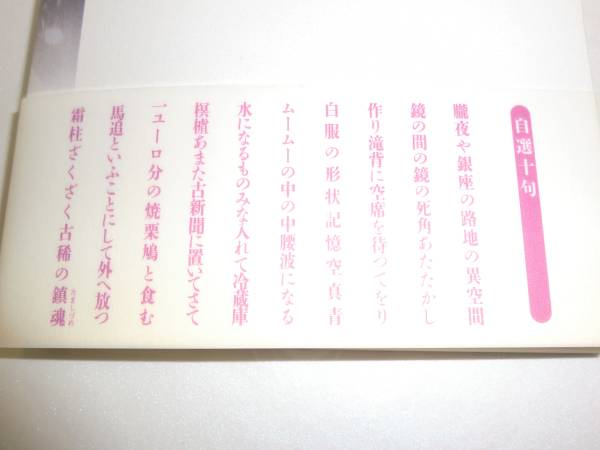 自選十句
朧夜や銀座の路地の異空間
鏡の間の鏡の死角あたたかし
作り滝背に空席を待つてをり
白服の形状記憶空真青
ムームーの中の中腰波になる
水になるものみな入れて冷蔵庫
榠樝あまた古新聞に置いてさて
一ユーロ分の焼栗鳩と食む
馬追といふことにして外へ放つ
霜柱ざくざく古稀の鎮魂
たましづめ